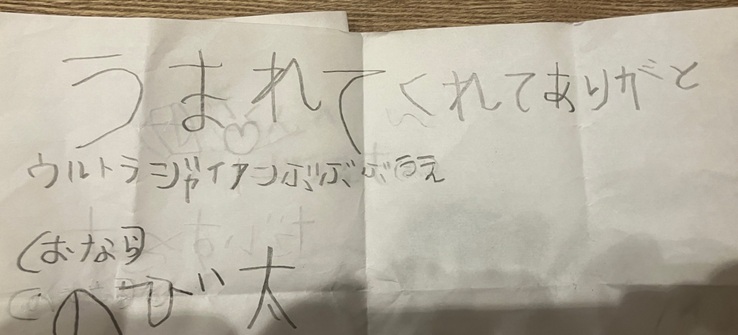 うまれてくれてありがと
ウルトラジャイアンぶぶぶううえ
(おなら)
のび太